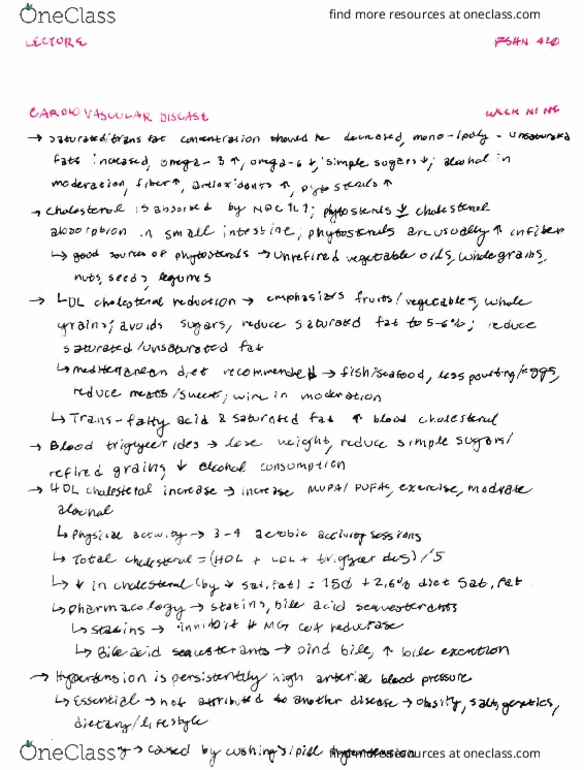 OneClass find more resources at oneclass.com
LECTURE FSHN 420
CARDIOVASCULAR DISEASE WEEK NINE
→ saturated/trans fat concentration should be decreased, mono-/poly-unsaturated
fats increased, omega-3 ↑, omega-6 ↓, simple sugars ↓; alcohol in
moderation, fiber ↑, antioxidants ↑, phytosterols ↑
→ Cholesterol is absorbed by NPC1L1; phytosterols ↓ cholesterol
absorption in small intestine; phytosterols are usually ↑ in fiber
↳ good sources of phytosterols → unrefined vegetable oils, whole grains,
nuts, seeds, legumes
→ LDL cholesterol reduction → emphasizes fruits/vegetables, whole
grains; avoids sugars, reduce saturated fat to 5-6%; reduce
saturated/unsaturated fat
↳ mediterranean diet recommended → fish/seafood, less poultry/eggs,
reduce meats/sweets; wine in moderation
↳ Trans-fatty acid & saturated fat ↑ blood cholesterol
→ Blood triglycerides → lose weight, reduce simple sugars/
refined grains, ↓ alcohol consumption
→ HDL cholesterol increase → increase MUFA/PUFAs, exercise, moderate
alcohol
↳ Physical activity → 3-4 aerobic activity sessions
↳ Total cholesterol = (HDL + LDL + triglycerides)/5
↳ ↓ in cholesterol (by ↓ sat. fat) = 150 + 2.6% diet sat. fat
↳ pharmacology → statins, bile acid sequesterants
↳ statins → inhibit HMG CoA reductase
↳ Bile acid sequesterants → bind bile, ↑ bile excretion
→ Hypertension is persistently high arterial blood pressure
↳ Essential → not attributed to another disease → obesity, salt, genetics,
dietary/lifestyle
→ caused by cushing's/pill hypertension
OneClass find more resources at oneclass.com